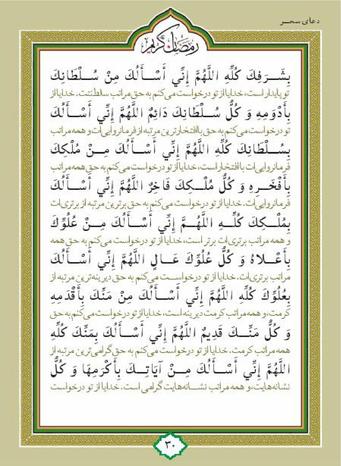 دعای سحر
رمضان کریم
بِشَرَفِكَ كُلِّهِ اللَّهُمَّ إِنِّي أَسْأَلُكَ مِنْ سُلْطَانِكَ
تو پایدار است، خدایا از تو درخواست می‌کنم به حق مراتب سلطنتت، خدایا از
بِأَدْوَمِهِ وَ كُلُّ سُلْطَانِكَ دَائِمٌ اللَّهُمَّ إِنِّي أَسْأَلُكَ
تو درخواست می‌کنم به حق باافتخارترین مرتبه از فرمانروایی‌ات و همه مراتب
بِسُلْطَانِكَ كُلِّهِ اللَّهُمَّ إِنِّي أَسْأَلُكَ مِنْ مُلْكِكَ
فرمانروایی‌ات باافتخار است، خدایا از تو درخواست می‌کنم به حق همه مراتب
بِأَفْخَرِهِ وَ كُلُّ مُلْكِكَ فَاخِرٌ اللَّهُمَّ إِنِّي أَسْأَلُكَ
فرمانروایی‌ات. خدایا از تو درخواست می‌کنم به حق برترین مرتبه از برتری‌ات
بِمُلْكِكَ كُلِّهِ اللَّهُمَّ إِنِّي أَسْأَلُكَ مِنْ عُلُوِّكَ
و همه مراتب برتری‌ات برتر است، خدایا از تو درخواست می‌کنم به حق همه
بِأَعْلاهُ وَ كُلُّ عُلُوِّكَ عَالٍ اللَّهُمَّ إِنِّي أَسْأَلُكَ
مراتب برتری‌ات. خدایا از تو درخواست می‌کنم به حق دیرینه‌ترین مرتبه از
بِعُلُوِّكَ كُلِّهِ اللَّهُمَّ إِنِّي أَسْأَلُكَ مِنْ مَنِّكَ بِأَقْدَمِهِ
کرمت، و همه مراتب کرمت دیرینه است، خدایا از تو درخواست می‌کنم به حق
وَ كُلُّ مَنِّكَ قَدِيمٌ اللَّهُمَّ إِنِّي أَسْأَلُكَ بِمَنِّكَ كُلِّهِ
همه مراتب کرمت، خدایا از تو درخواست می‌کنم به حق گرامی‌ترین مرتبه از
اللَّهُمَّ إِنِّي أَسْأَلُكَ مِنْ آيَاتِكَ بِأَكْرَمِهَا وَ كُلُّ
نشانه‌هایت، و همه مراتب نشانه‌هایت گرامی است، خدایا از تو درخواست
۳۰